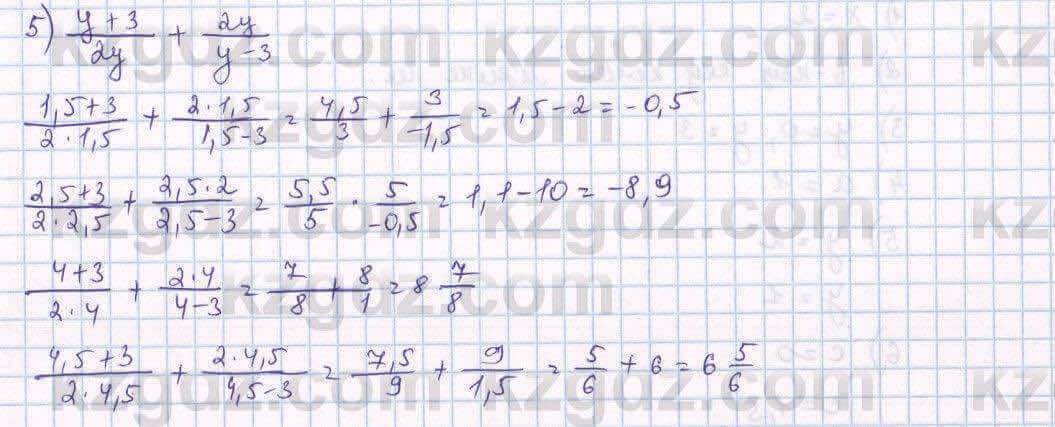 5) (y + 3)/(2y) + (2y)/(y - 3)
(1,5+3)/(2·1,5) + (2·1,5)/(1,5-3) = (4,5)/3 + 3/(-1,5) = 1,5 - 2 = -0,5
(2,5+3)/(2·2,5) + (2,5·2)/(2,5-3) = (5,5)/5 · 5/(-0,5) = 1,1 - 10 = -8,9
(4+3)/(2·4) + (2·4)/(4-3) = 7/8 + 8/1 = 8 7/8
(4,5+3)/(2·4,5) + (2·4,5)/(4,5-3) = (7,5)/9 + 9/(1,5) = 5/6 + 6 = 6 5/6
kzgdz.com